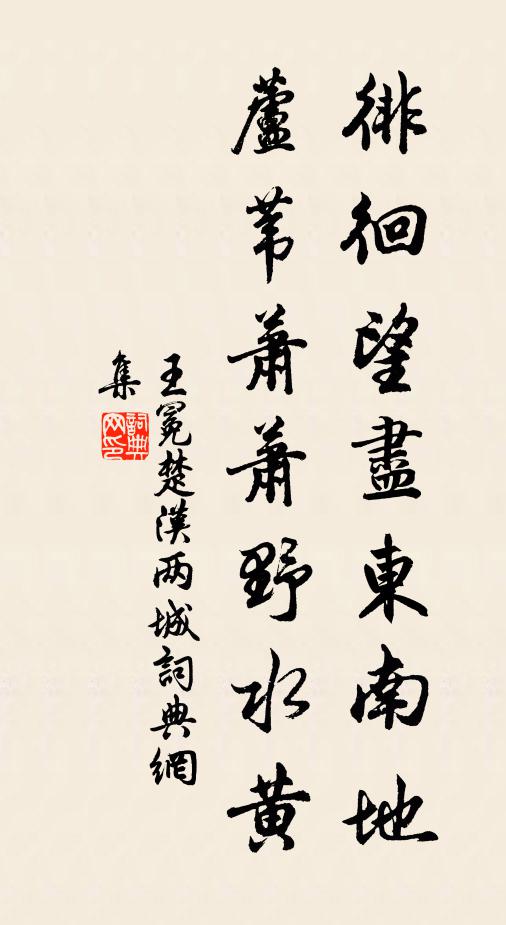 徘徊望盡東南地
蘆葦蕭蕭野水黃
王冕楚漢两城詞典網
集
詞典
网印